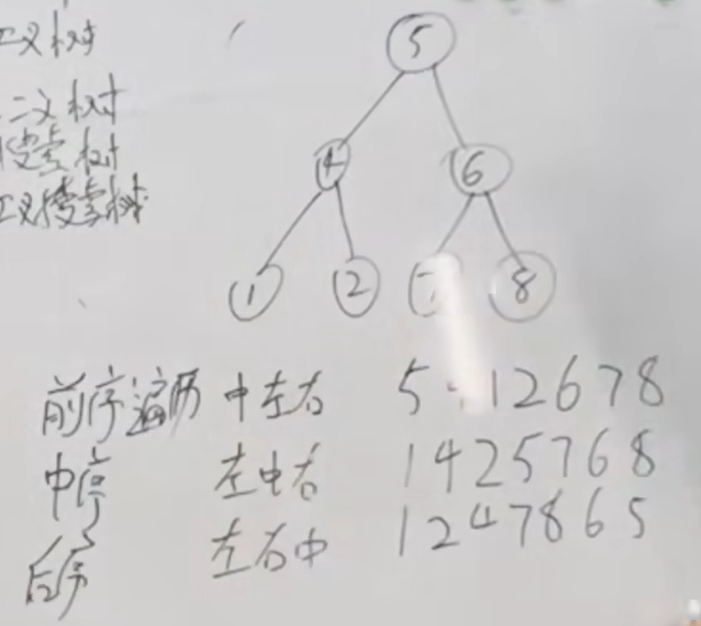 二叉树
二叉树
搜索树
二叉搜索树
5
4 6
1 2 7 8
前序遍历 中左右 5 12678
中序 左中右 1425768
后序 左右中 1247865